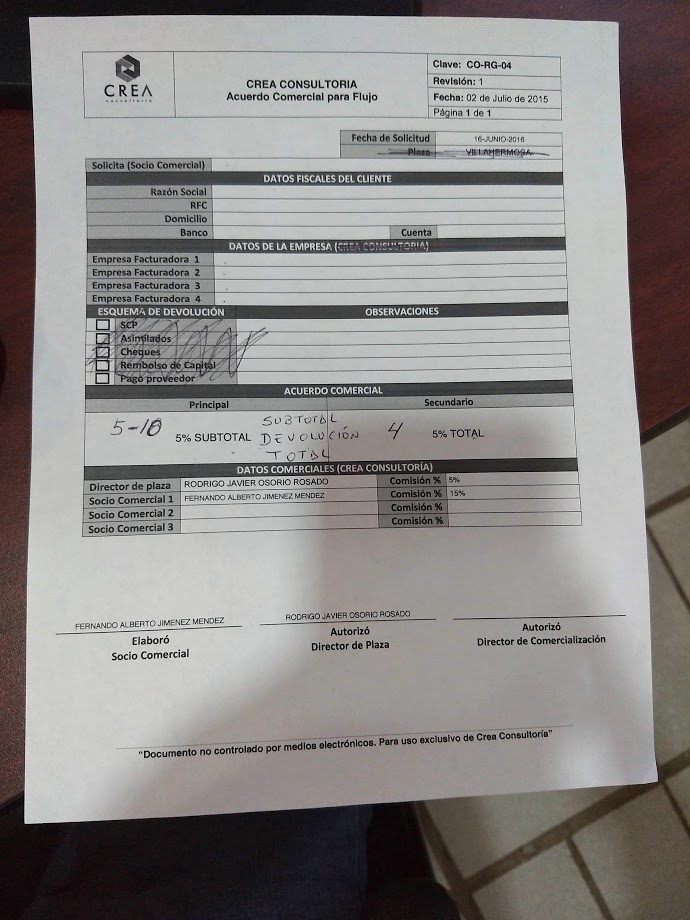 CREA
consultoría
CREA CONSULTORIA
Acuerdo Comercial para Flujo
Clave: CO-RG-04
Revisión: 1
Fecha: 02 de Julio de 2015
Página 1 de 1
Fecha de Solicitud 16-JUNIO-2016
Plaza VILLAHERMOSA
Solicita (Socio Comercial)
DATOS FISCALES DEL CLIENTE
Razón Social
RFC
Domicilio
Banco Cuenta
DATOS DE LA EMPRESA (CREA CONSULTORIA)
Empresa Facturadora 1
Empresa Facturadora 2
Empresa Facturadora 3
Empresa Facturadora 4
ESQUEMA DE DEVOLUCIÓN OBSERVACIONES
SCP
Asimilados
Cheques
Rembolso de Capital
Pago proveedor
ACUERDO COMERCIAL
Principal Secundario
5-10 5% SUBTOTAL SUBTOTAL
DEVOLUCIÓN 4 5% TOTAL
TOTAL
DATOS COMERCIALES (CREA CONSULTORÍA)
Director de plaza RODRIGO JAVIER OSORIO ROSADO Comisión % 5%
Socio Comercial 1 FERNANDO ALBERTO JIMENEZ MENDEZ Comisión % 15%
Socio Comercial 2 Comisión %
Socio Comercial 3 Comisión %
FERNANDO ALBERTO JIMENEZ MENDEZ RODRIGO JAVIER OSORIO ROSADO
Elaboró Autorizó Autorizó
Socio Comercial Director de Plaza Director de Comercialización
"Documento no controlado por medios electrónicos. Para uso exclusivo de Crea Consultoría"